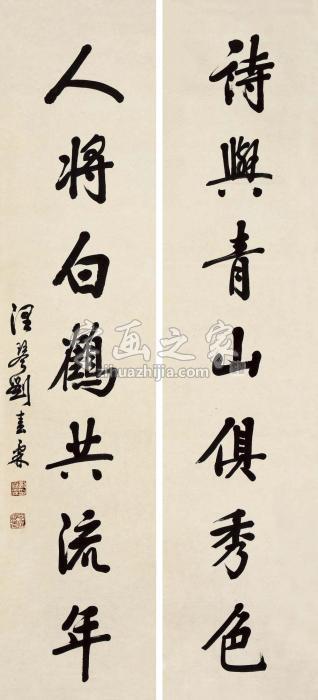 詩與青山俱秀色
人將白鶴共流年
潤琴劉春霖
书画之家
zihuazhijia.com